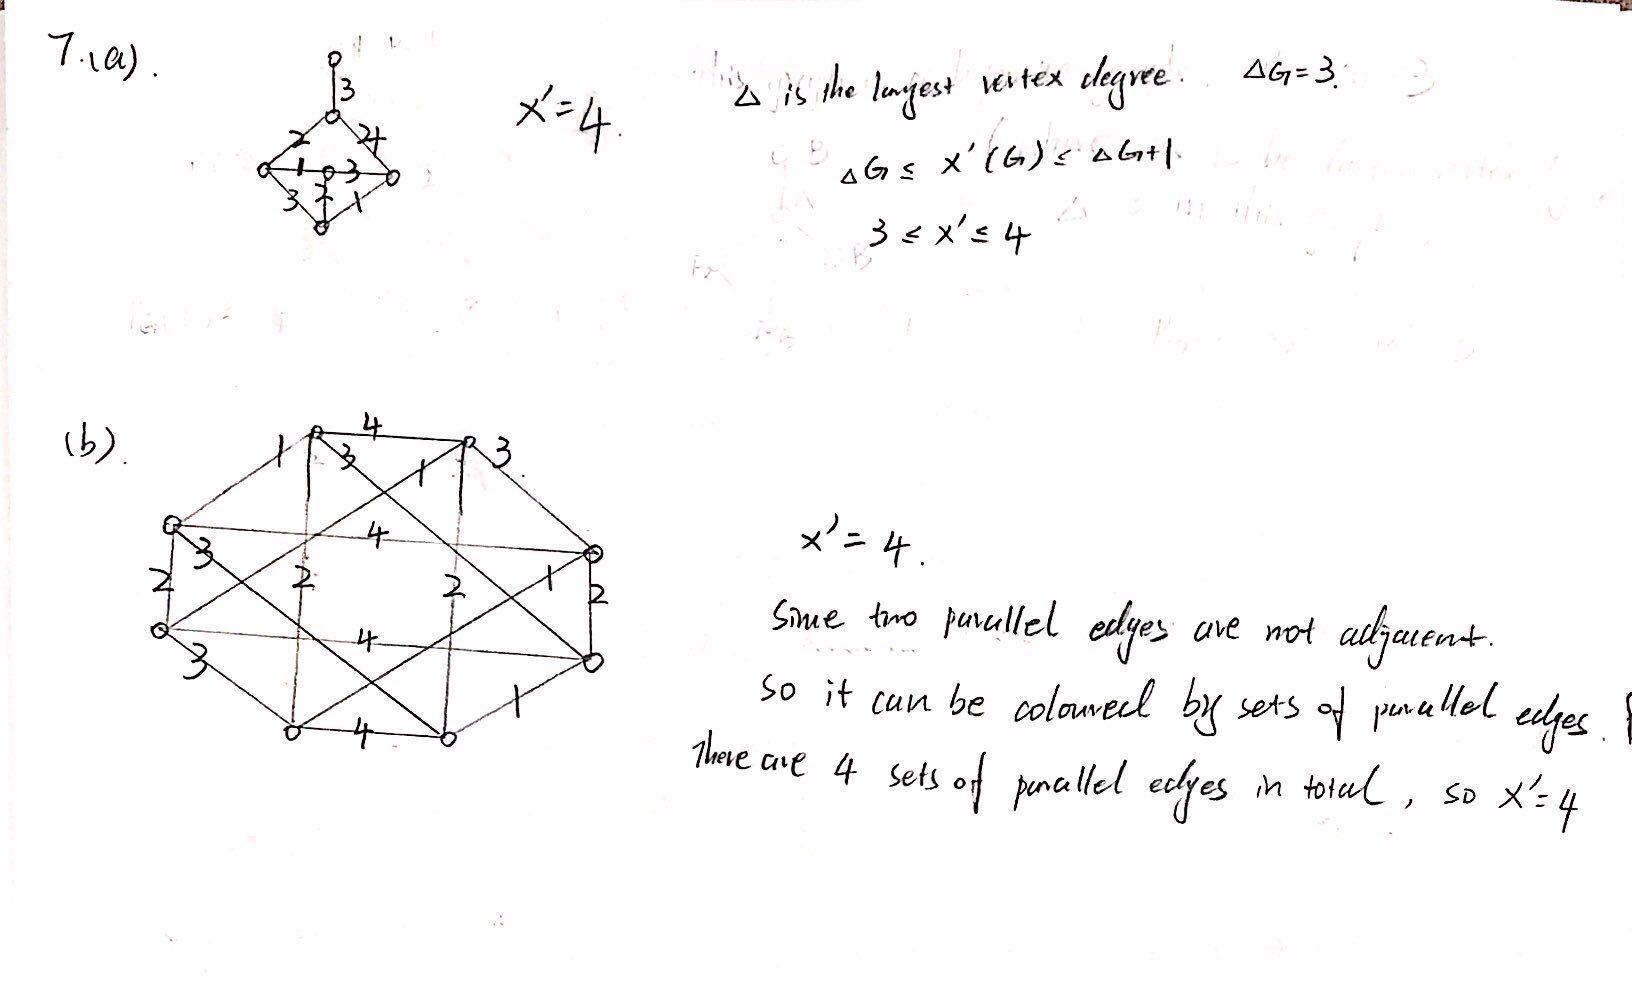 7.(a).
3
2 4
1 3
3 2 1
x' = 4.
Δ is the largest vertex degree. ΔG = 3.
ΔG ≤ x'(G) ≤ ΔG+1.
3 ≤ x' ≤ 4
(b).
4
1 3 1 3
4
3 1
2 2 2 2
4
3
1
4
x' = 4.
Since two parallel edges are not adjacent.
So it can be coloured by sets of parallel edges.
There are 4 sets of parallel edges in total, so x' = 4